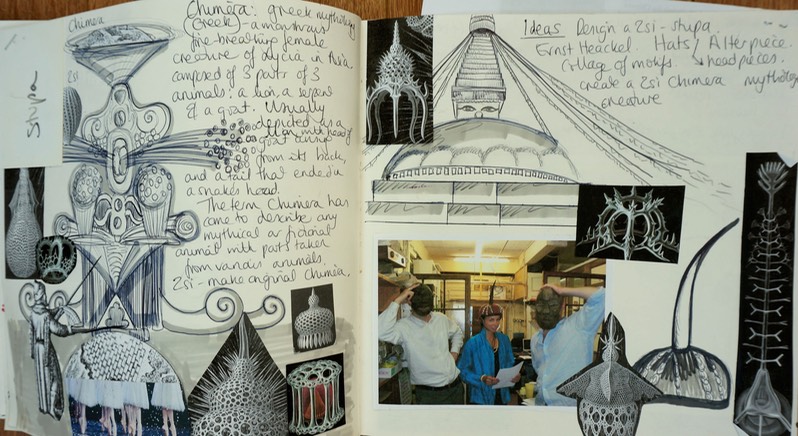 Chimera
Chimera: greek mythology
(Greek) - a monstrous
fire-breathing female
creature of Lycia in Asia
composed of 3 parts of 3
animals: a lion, a serpent
& a goat. Usually
depicted as a
lion, with head of
a goat arising
from its back,
and a tail that ended in
a snakes head.
The term Chimera has
come to describe any
mythical or fictional
animal with parts taken
from various animals.
ZSI - make original Chimera.
ZSI
Stupa
Ideas Design a ZSI - stupa.
Ernst Haeckel. Hats / Alterpiece.
Collage of motifs headpieces.
create a ZSI Chimera mythology
creature